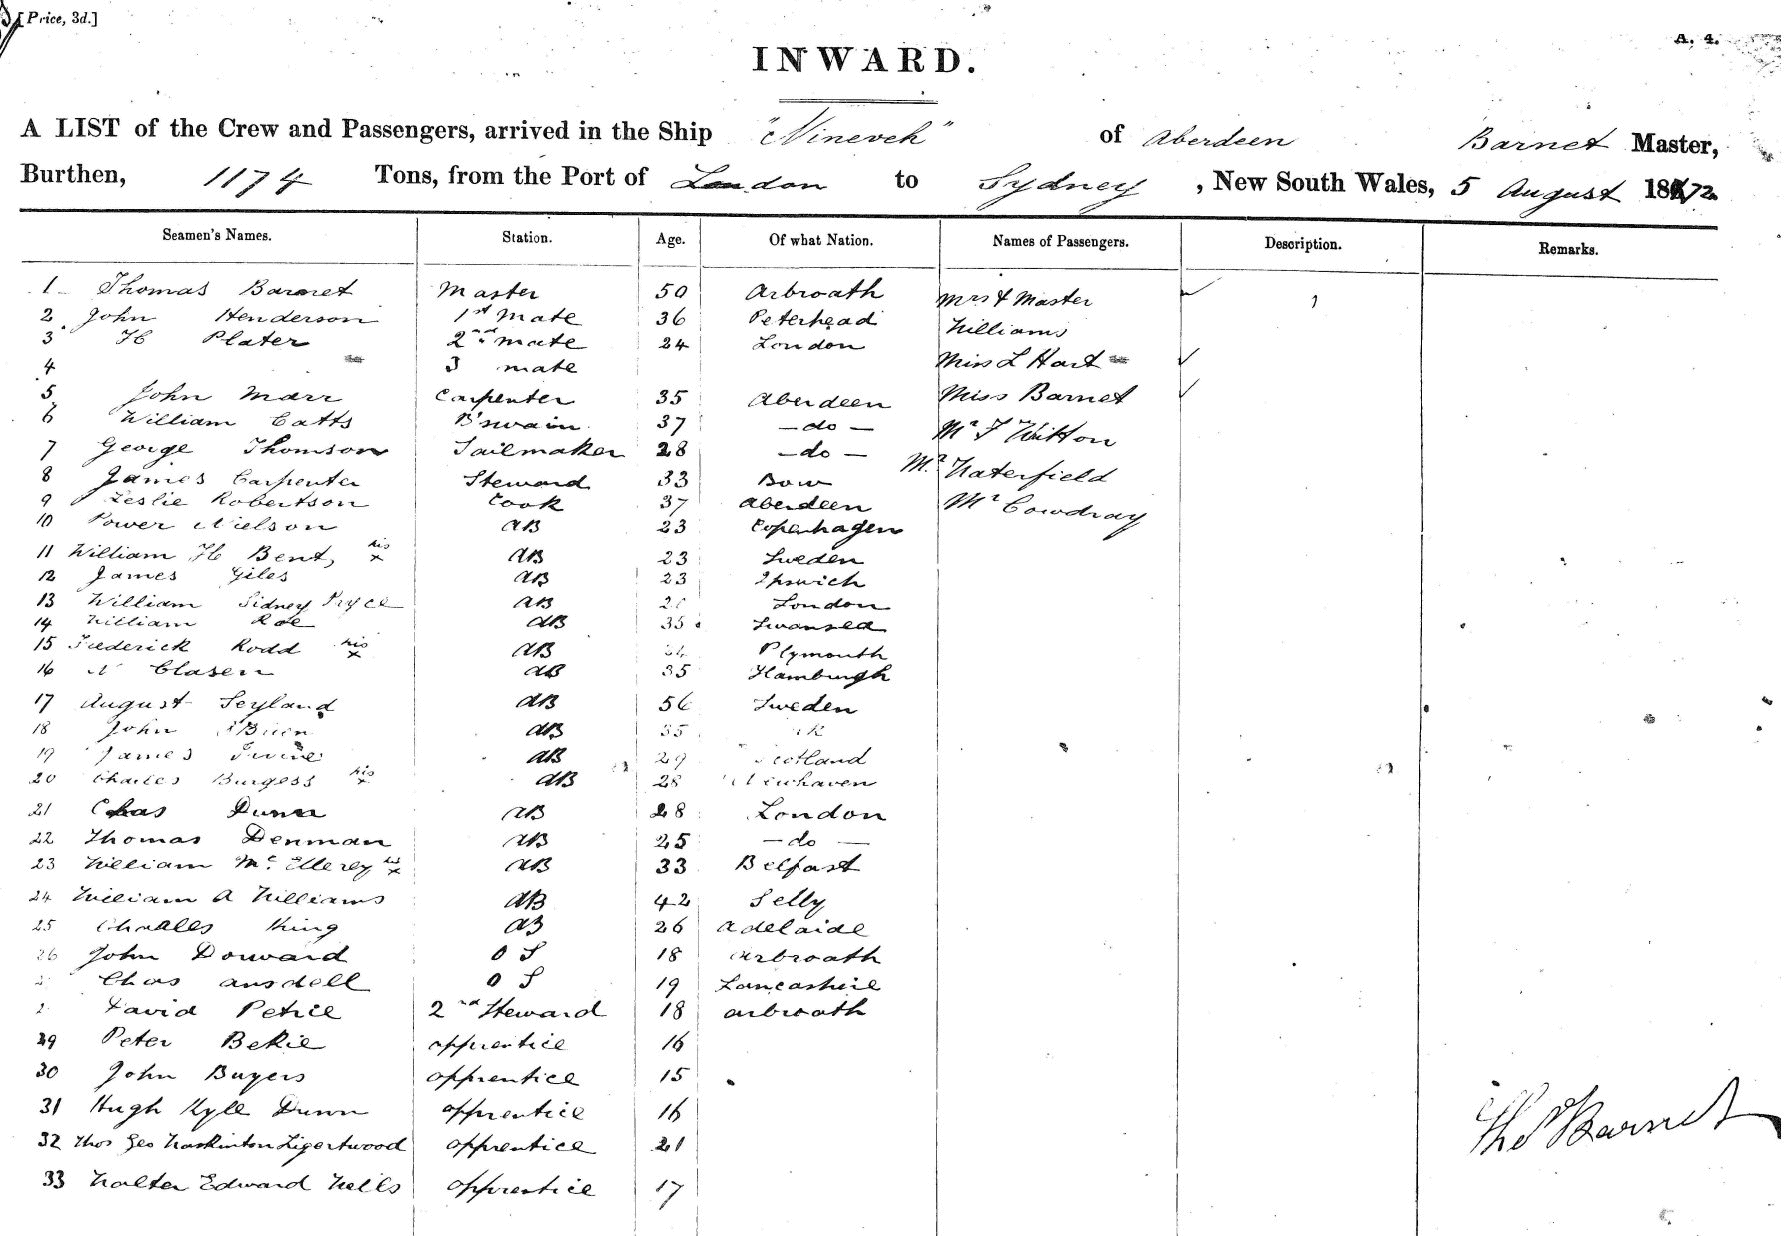 [Price, 3d.]
A. 4.
INWARD.
A LIST of the Crew and Passengers, arrived in the Ship "Nineveh" of Aberdeen Barnet Master,
Burthen, 1174 Tons, from the Port of London to Sydney, New South Wales, 5 August 1872
Seamen's Names. Station. Age. Of what Nation. Names of Passengers. Description. Remarks.
1 Thomas Barnet Master 50 Arbroath Mrs & Master 1
2 John Henderson 1st Mate 36 Peterhead Williams
3 H Plater 2nd mate 24 London
4 3 mate Miss L Hart ✓
5 John Marr Carpenter 35 Aberdeen Miss Barnet ✓
6 William Catts B'swain 37 - do - Mr F Witton
7 George Thomson Sailmaker 28 - do -
8 James Carpenter Steward 33 Bow Mr. Waterfield
9 Leslie Robertson Cook 37 Aberdeen Mr Cowdray
10 Power Nielson AB 23 Copenhagen
11 William H Bent, his x AB 23 Sweden
12 James Giles AB 23 Ipswich
13 William Sidney Pryce AB London
14 William Roe AB 35 Swansea
15 Frederick Rodd his x AB Plymouth
16 N Clasen AB 35 Hamburgh
17 August Seyland AB 56 Sweden
18 John O'Brien AB 35
19 James Irvine AB 29 Scotland
20 Charles Burgess his x AB 28 Newhaven
21 Chas Dunn AB 28 London
22 Thomas Denman AB 25 - do -
23 William Mc Ellerey his x AB 33 Belfast
24 William A Williams AB 42 Selly
25 Charles King AB 26 Adelaide
26 John Dorward O S 18 Arbroath
Chas Ansdell O S 19 Lancashire
David Petrie 2nd Steward 18 Arbroath
29 Peter Bekie apprentice 16
30 John Buyers apprentice 15
31 Hugh Kyle Dunn apprentice 16
32 Thos Geo Ligertwood apprentice 21
33 Walter Edward Wells apprentice 17
Thos Barnet